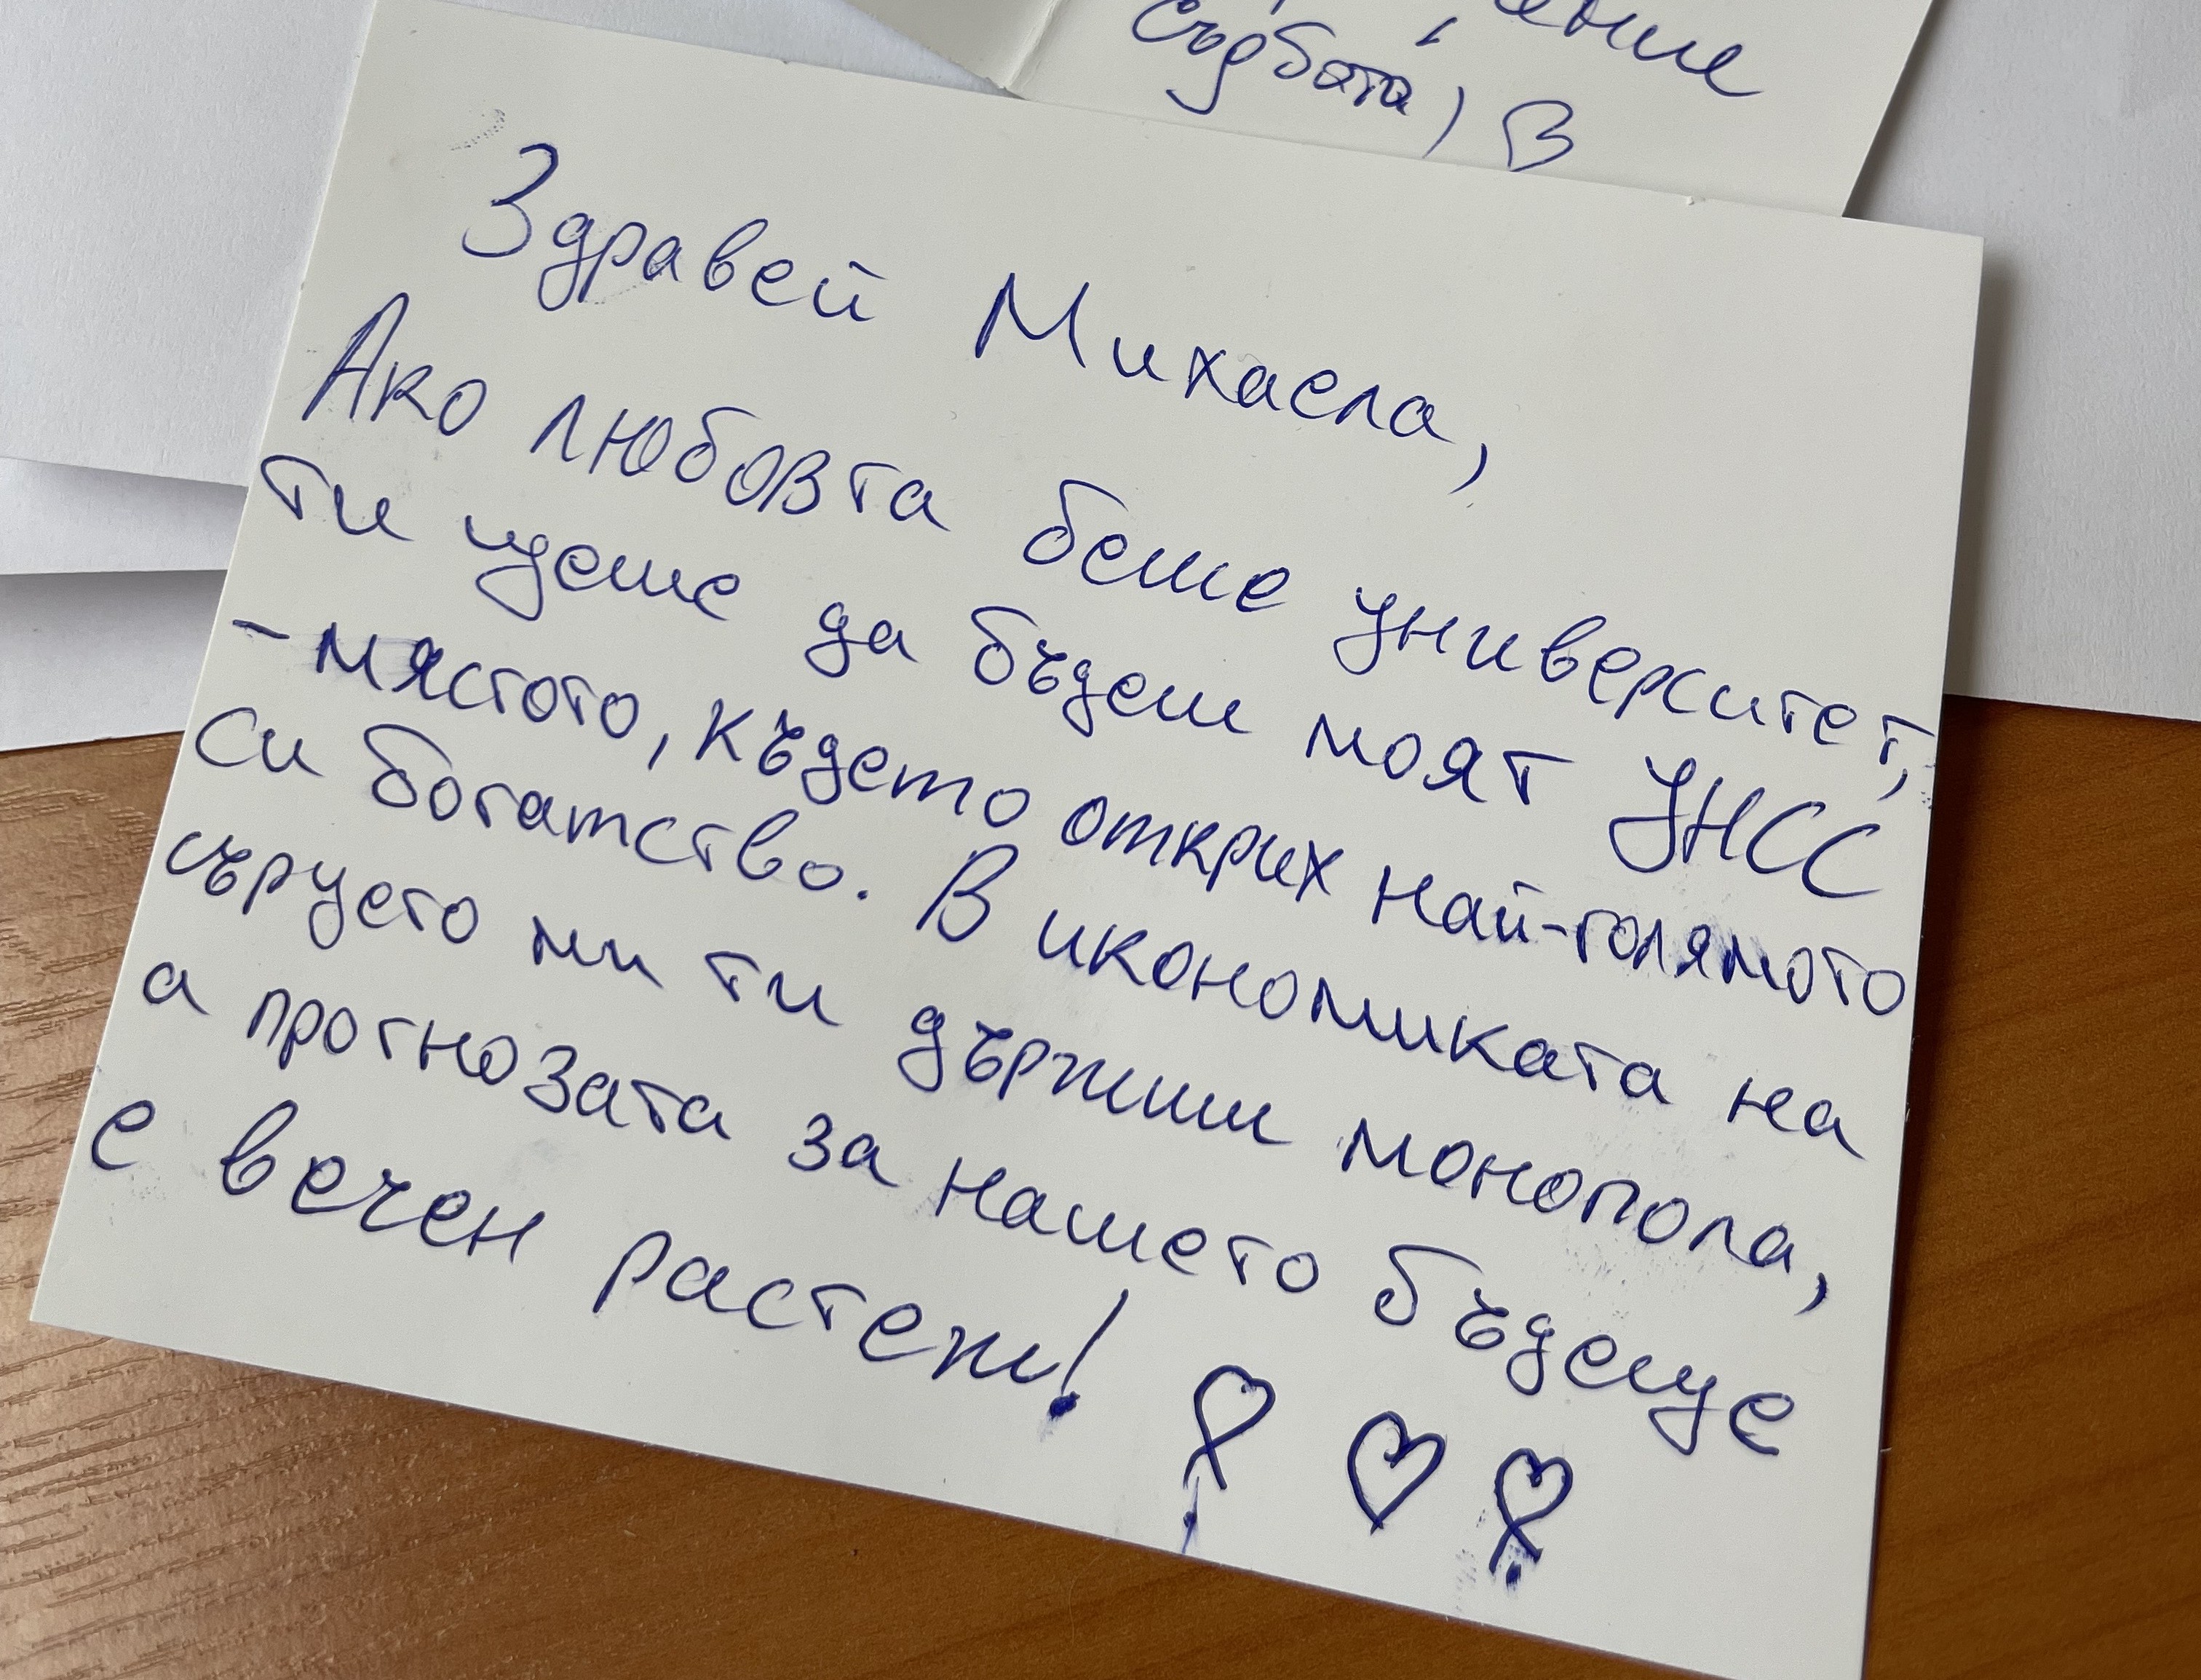 съдбата, ♡
Здравей Михаела,
Ако любовта беше университет,
ти щеше да бъдеш моят УНСС
- мястото, където открих най-голямото
си богатство. В икономиката на
сърцето ми ти държиш монопола,
а прогнозата за нашето бъдеще
е вечен растеж! ♡ ♡ ♡